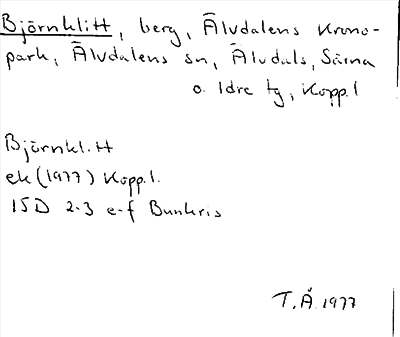 Björnklitt, berg, Älvdalens Krono-
park, Älvdalens sn, Älvdals, Särna
o. Idre tg, Kopp.l
Björnklitt
ek (1977) Kopp.l.
15D 2-3 e-f Bunkris
T.Å. 1977